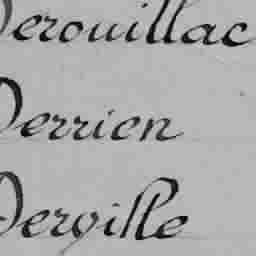 Derouillac
Derrien
Derville